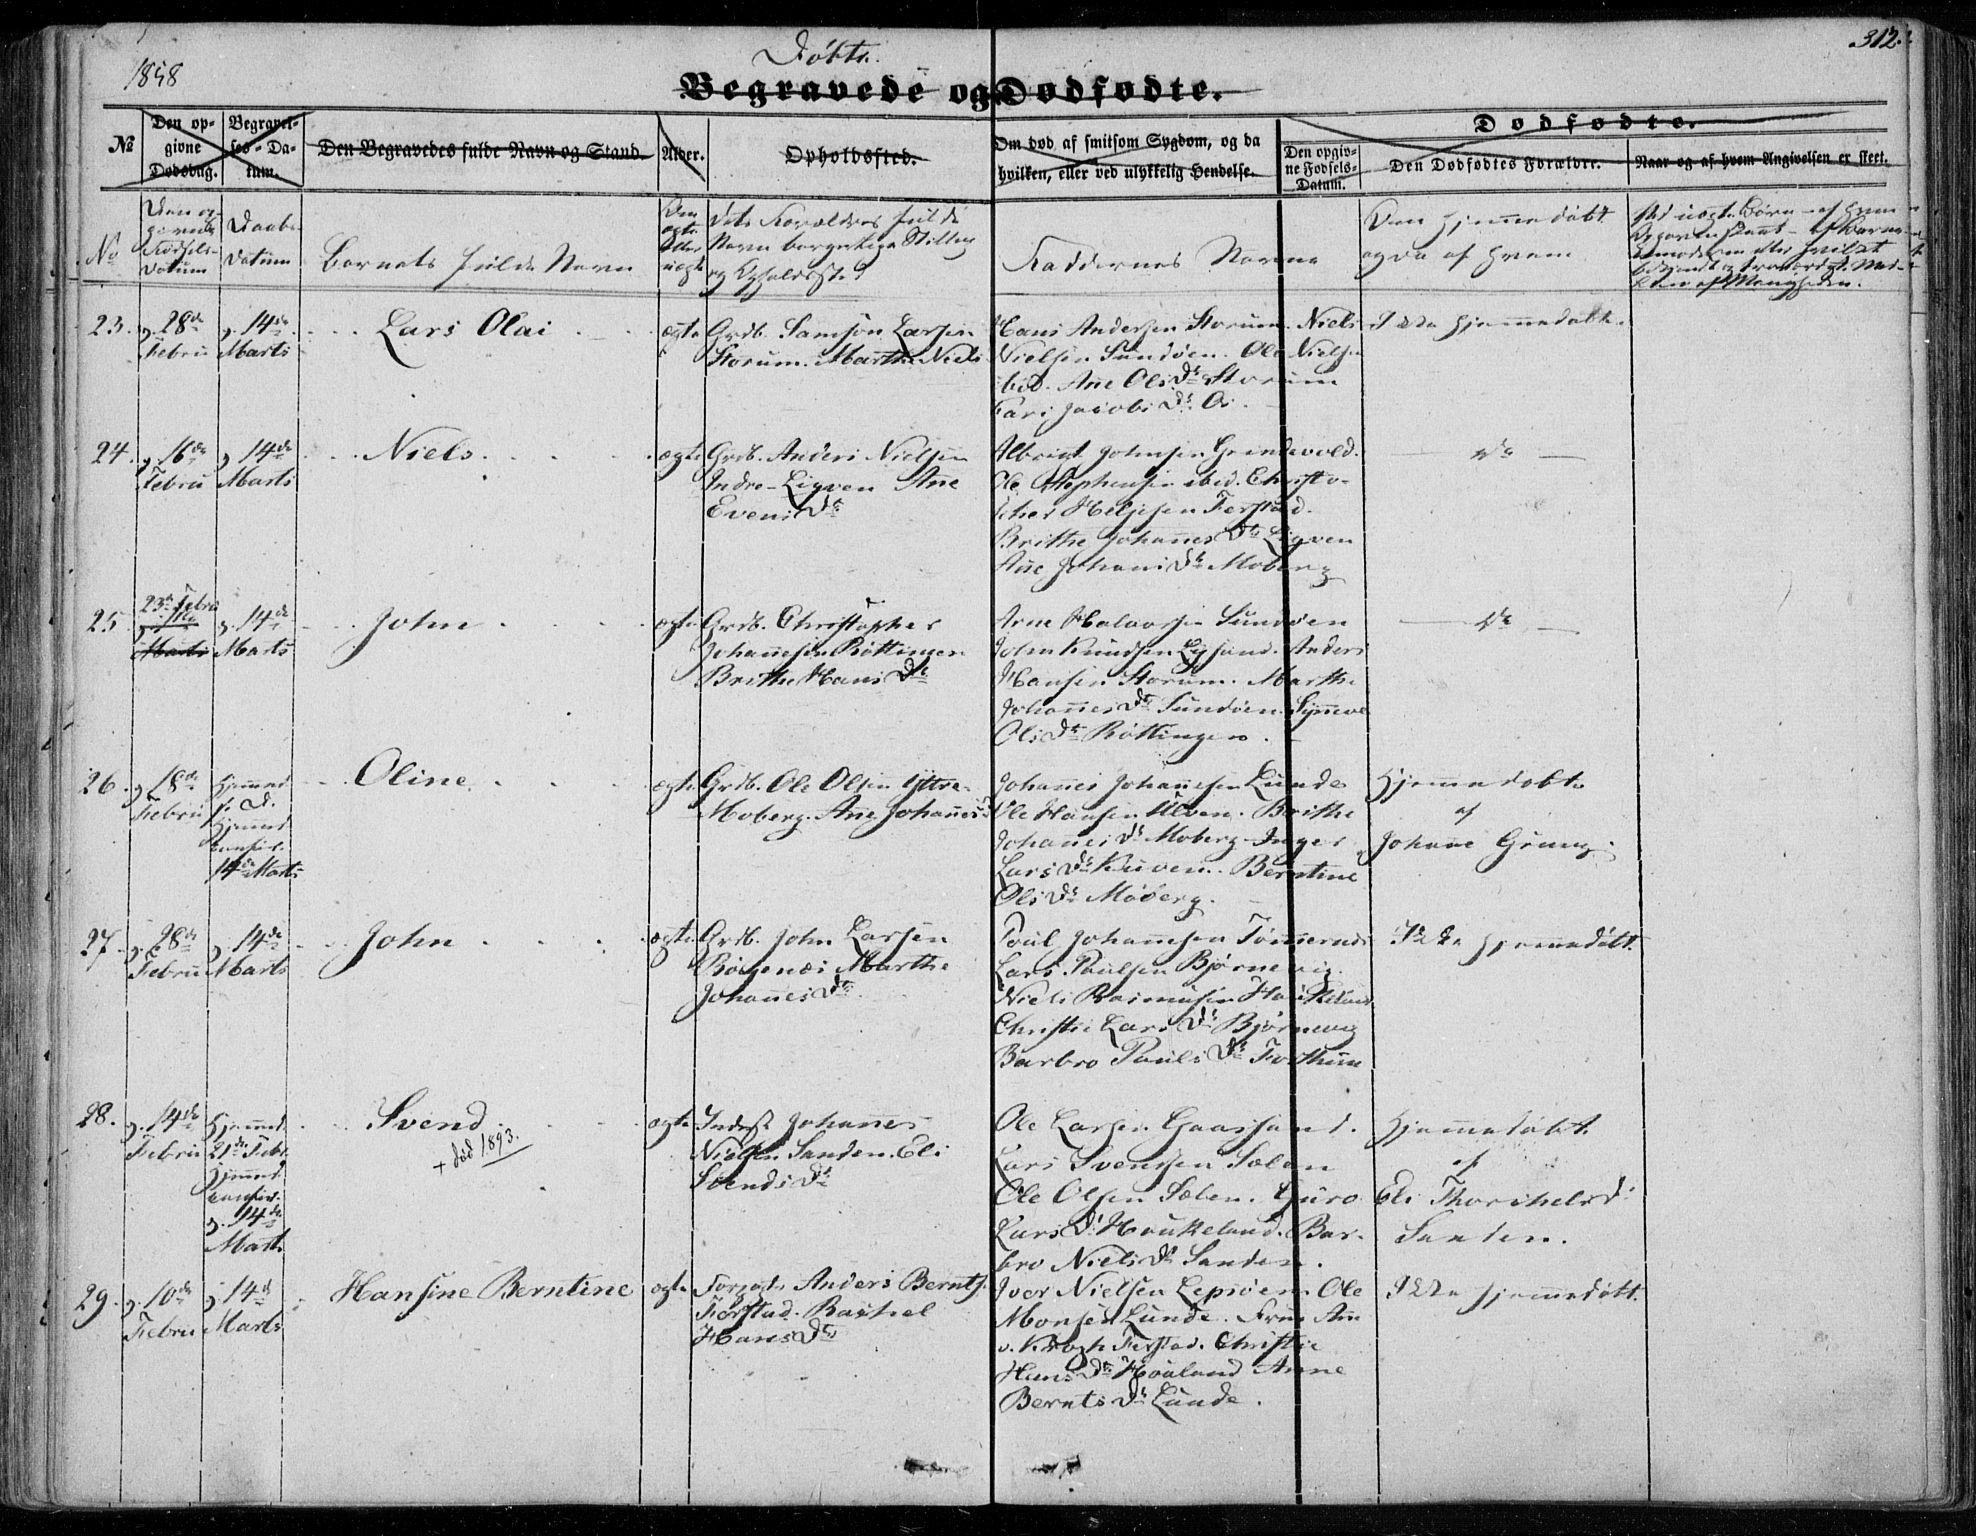 1858
Døbte.
312.
Begravede og Dødfødte.
№
Den op-
givne
Dødsdag.
Begravel-
ses-Da-
tum.
Den Begravedes fulde Navn og Stand.
Alder.
Opholdssted.
Om død af smitsom Sygdom, og da
hvilken, eller ved ulykkelig Hendelse.
Dødfødte.
Den opgiv-
ne Fødsels-
Datum.
Den Dødfødtes Forældre.
Naar og af hvem Angivelsen er skeet.
No
Den op-
givne
Fødsels-
Datum
Daabs
Datum
Barnets fulde Navn
Om
ægte
eller
uægte
Dets Forældres fulde
Navn borgerlige Stilling
og Opholdssted
Faddernes Navne
Om hjemmedøbt
og da af hvem
23. d. 28de
Febru
d. 14de
Marts
Lars Olai
ægte
Grdb. Samson Larsen
Storum. Marthe Niels
Hans Andersen Storum. Niels
Nielsen Sundøen. Ole Nielsen
ibid. Ane Ols Dr Storum
Kari Jacobs Dr Os.
Ikke hjemmedøbt.
24. d. 16de
Febru
d. 14de
Marts
Niels
ægte
Grdb. Anders Nielsen
Indre-Ligven Ane
Evens Dr
Albrigt Johnsen Grindevold.
Ole Stephensen ibid. Christo-
pher Helgesen Ferstad.
Brithe Johannes Dr Ligven
Ane Johans Dr Moberg
— do —
25. 23de Febru
Marts
d. 14de
Marts
John
ægte
Grdb. Christopher
Johannesen Røttingen
Brithe Hans Dr
Arne Halvorsen Sundøen
John Knudsen Lysand. Anders
Hansen Storum. Marthe
Johannes Dr Sundøen. Synneve
Ols Dr Røttingen.
— do —
26. d. 18de
Febru
Hjemmed.
Hjemmed.
14de Marts
Oline.
ægte
Grdb. Ole Olsen Yttre-
Moberg. Ane Johannes
Johannes Johannesen Lunde
Ole Hansen Ulven. Brithe
Johannes Dr Moberg. Inger
Lars Dr Kuven. Berntine
Ols Dr Moberg.
Hjemmedøbt
af
Johane Grung.
27. d. 28de
Febru
d. 14de
Marts
John
ægte
Grdb. John Larsen
Bøgenæs Marthe
Johannes Dr
Poul Johannesen Tømmernæs
Lars Poulsen Bjørnevig.
Niels Rasmusen Haukeland
Christi Lars Dr Bjørnevig
Barbro Pouls Dr Forthun
Ikke hjemmedøbt.
28. d. 14de
Febru
Hjemmed.
21de Febr.
Hjemmed.
d. 14de
Marts
Svend
+ død 1893.
ægte
Inderst Johannes
Nielsen Sanden. Eli
Svends Dr
Ole Larsen Gaassand.
Lars Svendsen Sælen
Ole Olsen Sælen. Guro
Lars Dr Haukeland. Bar-
bro Niels Dr Sanden.
Hjemmedøbt
af
Eli Thorkelsd.
Sanden.
29. d. 10de
Febru
d. 14de
Marts
Hansine Berntine
ægte
Anders Berntz.
Ferstad. Rachel
Hans Dr
Iver Nielsen Lepsøen. Ole
Monsen Lunde. Frue Ane
v. Krogh Ferstad. Christie
Hans Dr Hovland Anne
Bernts Dr Lunde.
Ikke hjemmedøbt.